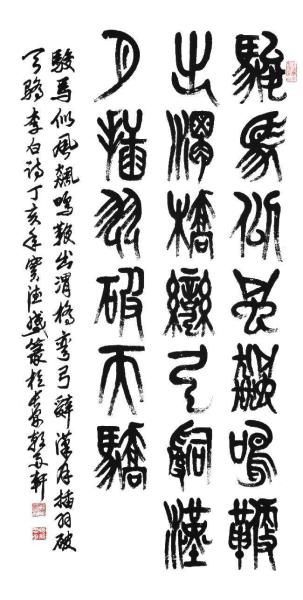 駿馬似風飆鳴鞭
出渭橋彎弓辭漢
月插羽破天驕
駿馬似風飆鳴鞭出渭橋彎弓辭漢月插羽破
天驕李白诗丁亥年於軒